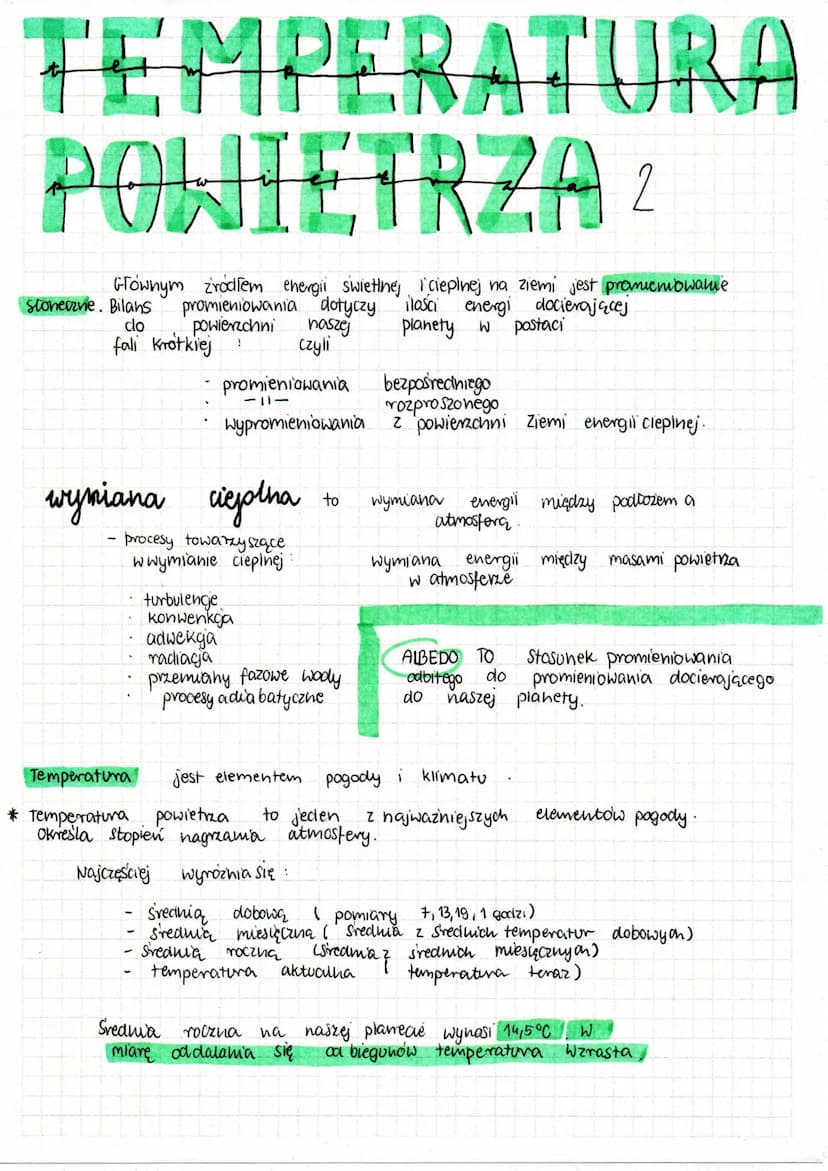 TEMPERATURA
temperatura
POWIETRZA 2
powietrza
Głównym źródłem energii świetlnej i cieplnej na ziemi jest promieniowanie
słoneczne. Bilans promieniowania dotyczy ilości energi docierającej
do powierzchni naszej planety w postaci
fali krótkiej : czyli
· promieniowania bezpośredniego
· -11- rozproszonego
· wypromieniowania z powierzchni Ziemi energii cieplnej.
wymiana cieplna to wymiana energii między podłożem a
atmosferą.
- procesy towarzyszące
w wymianie cieplnej :
wymiana energii między masami powietrza
w atmosferze
· turbulencje
· konwenkcja
· adwekcja
· radiacja
· przemiany fazowe wody
· procesy adiabatyczne
ALBEDO TO stosunek promieniowania
odbitego do promieniowania docierającego
do naszej planety.
Temperatura jest elementem pogody i klimatu .
* Temperatura powietrza to jeden z najważniejszych elementów pogody.
Określa stopień nagrzania atmosfery.
Najczęściej wyróżnia się :
- średnią dobową ( pomiary 7, 13, 19, 1 godz.)
- średnią miesięczną ( średnia z średnich temperatur dobowych)
- średnią roczną (średnia z średnich miesięcznych)
- temperatura aktualna ( temperatura teraz)
Średnia roczna na naszej planecie wynosi 14,5°C. W
miarę oddalania się od biegunów temperatura wzrasta.